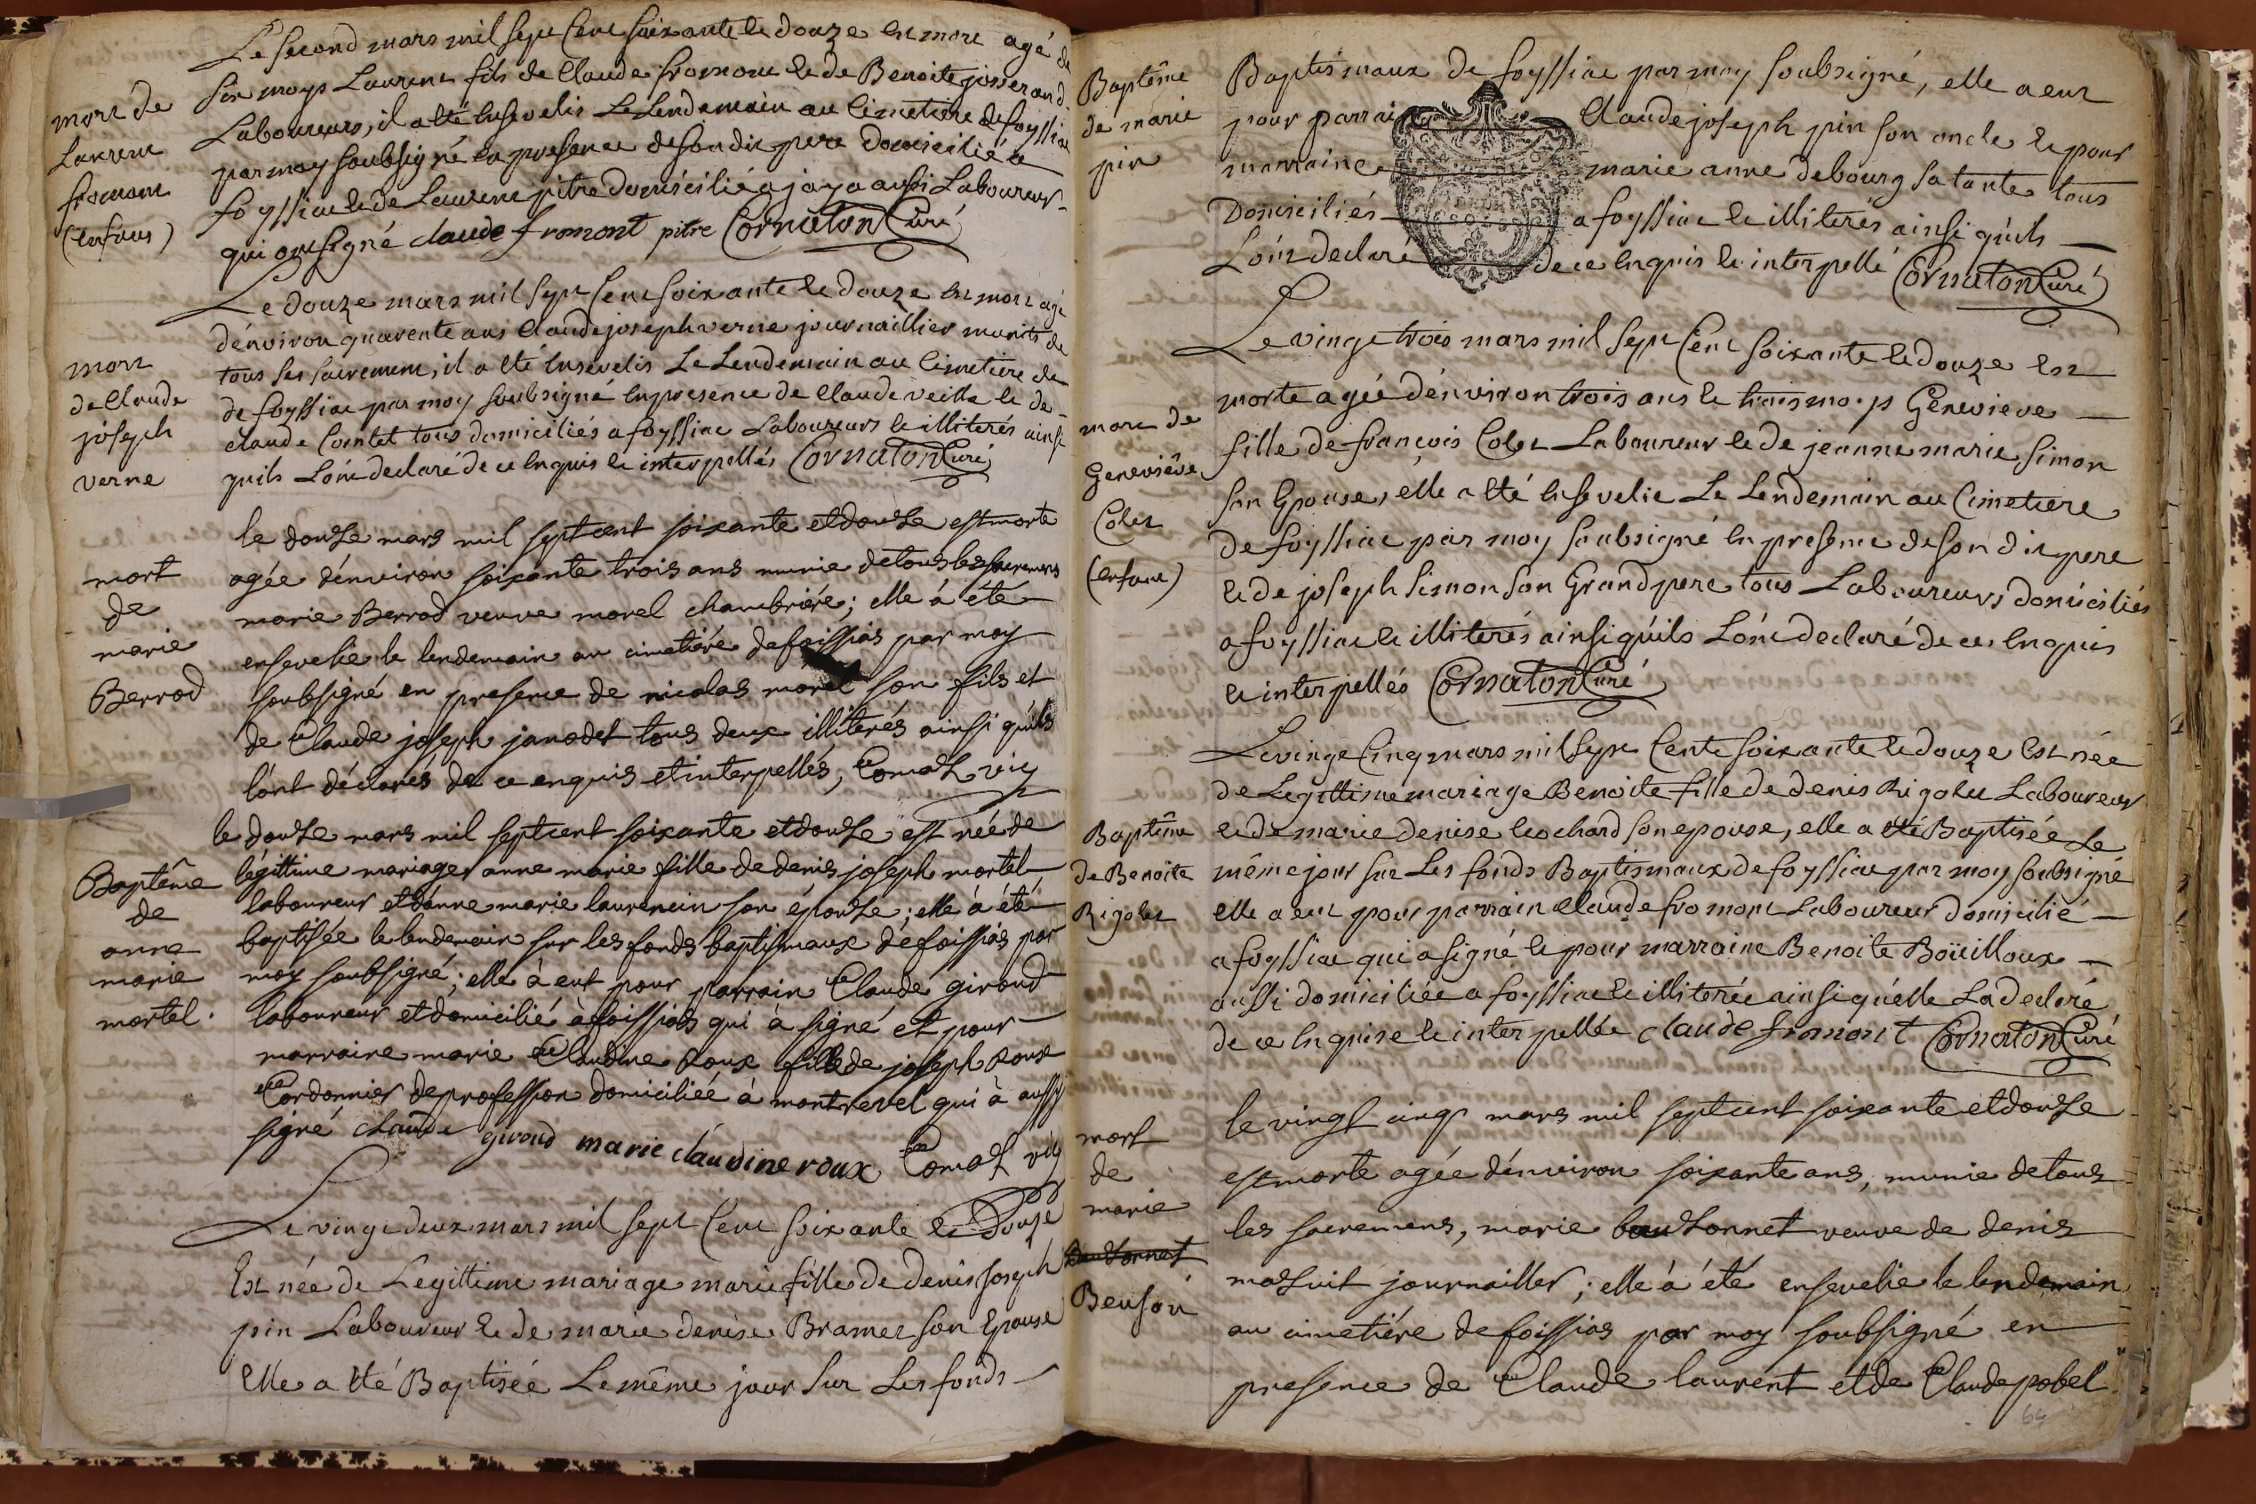 Le second mars mil sept Cent soixante et douze est mort agé de
mort de
Laurent
fromont
(Enfant)
six moys Laurent fils de Claude fromont et de Benoite josserand
Laboureurs, il a eté Ensevelis Le Lendemain au Cimetiere de foyssiac
par moy soubsigné En presence de son dit pere Domicilié a
foyssiac et de Laurent pitre domicilié a jaya aussi Laboureur
qui ont signé claude fromont pitre Cornaton Curé
Le douze mars mil sept Cent soixante et douze est mort agé
mort
de Claude
joseph
verne
d'énviron quarente ans Claude joseph verne journaillier munits de
tous ses sacrement, il a eté Ensevelis Le Lendemain au Cimetiere de
de foyssiac par moy soubsigné En presence de Claude veille et de
claude Cointet tous domiciliés a foyssiac Laboureurs et illiterés ainsi
quils Lon't declaré de ce Enquis et interpellés Cornaton Curé
le douze mars mil septcent soixante et douze est morte
mort
de
marie
Berrod
agée d'énviron soixante trois ans munie de tous les sacremens
marie Berrod veuve morel chambriére; elle à été
ensevelie le lendemain au cimetiére de foissias par moy
soubsigné en presence de nicolas morel son fils et
de Claude joseph janodet tous deux illiterés ainsi qu'ils
l'ont déclarés de ce enquis et interpellés,
le douze mars mil septcent soixante et douze est née de
Baptême
de
anne
marie
mortel.
légittime mariage anne marie fille de denis joseph mortel
laboureur et d'anne marie laurencin son épouse; elle à été
baptisée le lendemain sur les fonds baptismaux de foissias par
moy soubsigné; elle à eut pour parrain Claude giroud
laboureur et domicilié à foissias qui à signé et pour
marraine marie Claudine Roux fille de joseph Roux
Cordonnier de profession domiciliée à montrevel qui à aussy
signé claude giroud marie claudine roux
Le vingt deux mars mil sept Cent soixante et Douze
Est née de Legittime mariage marie fille de denis joseph
pin Laboureur et de marie denise Bramet son Epouse
Elle a eté Baptisée Le même jour sur Les fonds
Baptême
de marie
pin
Baptismaux de foyssiac par moy soubsigné, elle a eut
pour parrain Claude joseph pin son oncle et pour
marraine marie anne debourg sa tante tous
Domiciliés a foyssiac et illiterés ainsi qu'ils
Lon't declaré de ce Enquis et interpellé Cornaton Curé
Le vingt trois mars mil sept Cent soixante et douze est
mort de
Geneviêve
Colet
(enfant)
morte agée d'énviron trois ans et trois moys Genevieve
fille de françois Colet Laboureur et de jeanne marie simon
son Epouse, elle a eté Ensevelie Le Lendemain au Cimetiere
de foyssiac par moy soubsigné En presence de son dit pere
et de joseph simon son Grand pere tous Laboureurs domiciliés
a foyssiac et illiterés ainsi qu'ils Lon't declaré de ce Enquis
et interpellés Cornaton Curé
Le vingt Cinq mars mil sept Cent soixante et douze Est née
Baptême
de Benoite
Rigolet
de Legittime mariage Benoite fille de denis Rigolet Laboureur
et de marie denise cochard son epouse, elle a eté Baptisée Le
même jour sur Les fonds Baptismaux de foyssiac par moy soubsigné
elle a eut pour parrain claude fromont Laboureur domicilié
a foyssiac qui a signé et pour marraine Benoite Boüilloux
aussi domiciliée a foyssiac et illiterée ainsi qu'elle La declaré
de ce Enquise et interpellée claude fromont Cornaton Curé
le vingt cinq mars mil septcent soixante et douze
mort
de
marie
Beuson
est morte agée d'énviron soixante ans, munie de tous
les sacremens, marie veuve de denis
journallier; elle à été ensevelie le lendemain
au cimetiére de foissias par moy soubsigné en
presence de Claude laurent et de Claude pobel
64